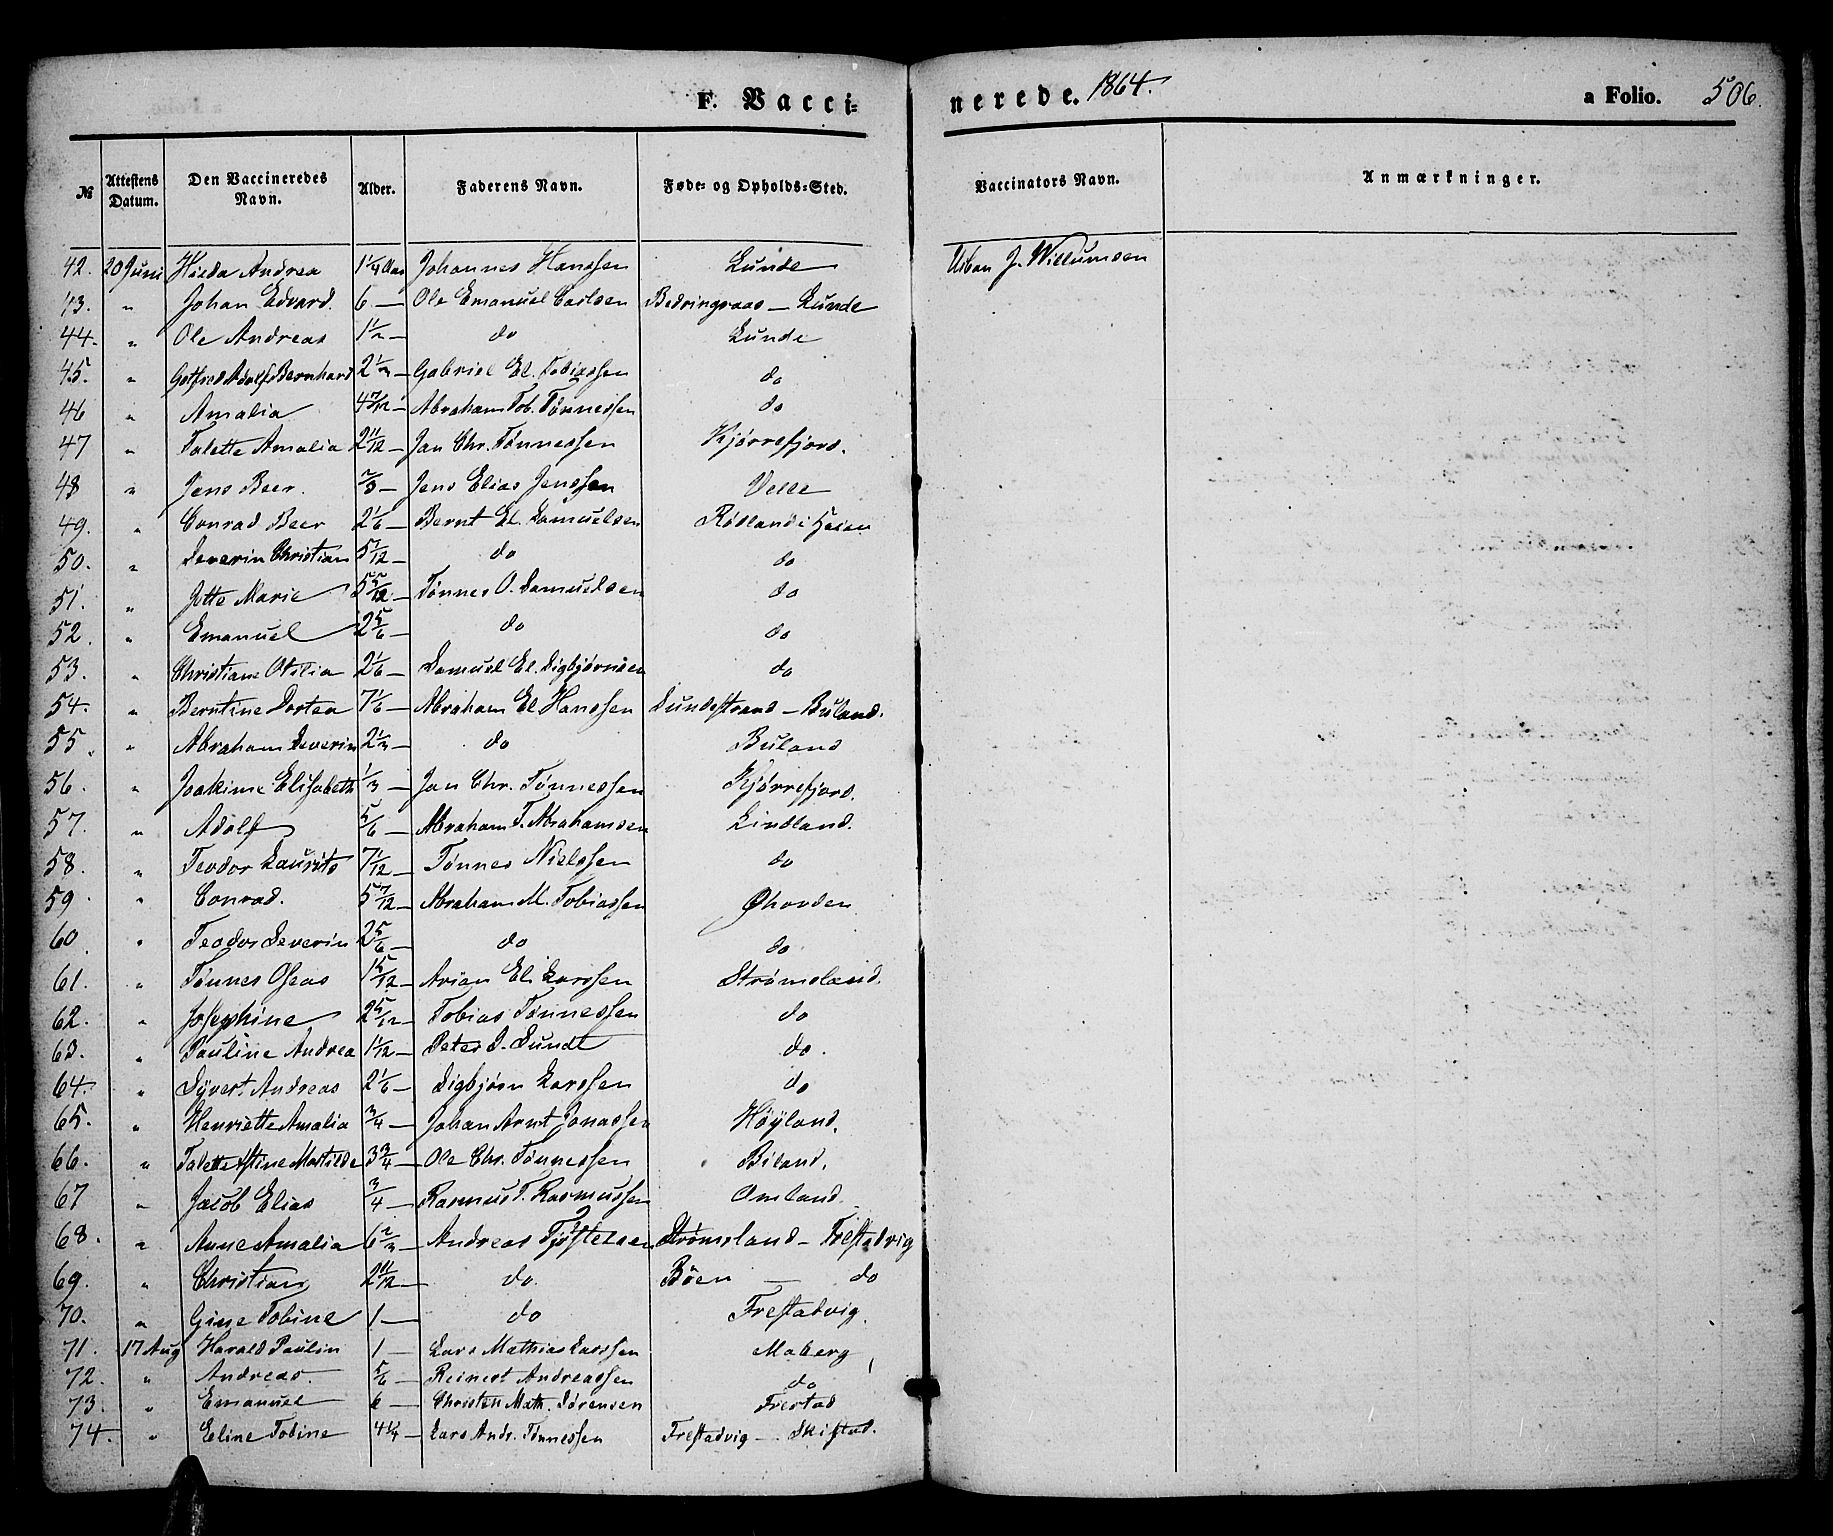 F. Vacci=
nerede. 1864.
a Folio. 506.
№ Attestens Datum. Den Vaccineredes Navn. Alder. Faderens Navn. Føde- og Opholds-Sted. Vaccinators Navn. Anmærkninger.
42. 20 Juni Andrea 1 1/4 Aar Johannes Hanssen Lunde J. Willumsen
43. " Johan Edvard. 6 — Ole Emanuel Carlsen — Lunde
44. " Ole Andreas 1 1/2 — do Lunde
45. " Gotfred Adolf Bernhard 2 1/2 — Gabriel El. Tobiassen do
46 " Amalia 4 7/12 — Abraham Tob. Tønnessen do
47 " Talette Amalia 2 11/12 — Jan Chr. Tønnessen Kjørrefjord.
48 " Jens Beer. 2/3 — Jens Elias Jenssen Velle
49. " Conrad Beer 2 1/6 — Bernt El. Samuelsen Rødland i Heien
50. " Severin Christian 5 7/12 — do do
51. " Jotte Marie 5 5/12 — Tønnes O. Samuelsen do
52. " Emanuel 2 5/6 — do do
53. " Christiane Otilia 2 1/6 — Samuel El. Sigbjørnsen do
54. " Berntine Dortea 7 1/6 — Abraham El. Hanssen Sundestrand — Buland.
55. " Abraham Severin 2 1/2 — do Buland
56. " Joakime Elisabeth 1/3 — Jan Chr. Tønnessen Kjørrefjord.
57. " Adolf 5/6 — Abraham T. Abrahamsen Lindland.
58. " Teodor Laurits 7 1/12 — Tønnes Nielssen do
59. " Conrad. 5 7/12 — Abraham M. Tobiassen Øhovden
60 " Teodor Severin 2 5/6 — do do
61. " Tønnes Oseas 1 5/12 — Arian El. Larssen Strømsland.
62. " Josephine 2 5/12 — Tobias Tønnessen do
63. " Pauline Andrea 1 1/12 — Peter S. Sundt do.
64. " Syvert Andreas 2 1/6 — Sigbjørn Larssen do
65. " Henriette Amalia 3/4 — Johan Arnt Jonassen Høyland.
66. " Talette Stine Matilde 3 3/4 — Ole Chr. Tønnessen Biland.
67 " Jacob Elias 3/4 — Rasmus T. Rasmussen Omland
68. " Anne Amalia 6 2/3 — Andreas Tjøstelsen Strømsland — Frestadvig
69. " Christian 2 11/12 — do. Bøen — do
70. " Gine Tobine 1 — do Frestadvig.
71. 17 Aug Harald Paulin 1 — Lars Mathias Larssen Moberg
72. " Andreas. 5/6 — Reinert Andreassen do
73. " Emanuel 6 — Christen Math. Sørensen Frestad
74. " Eline Tobine 4 1/4 — Lars Andr. Tønnessen Frestadvig — Skifstad.